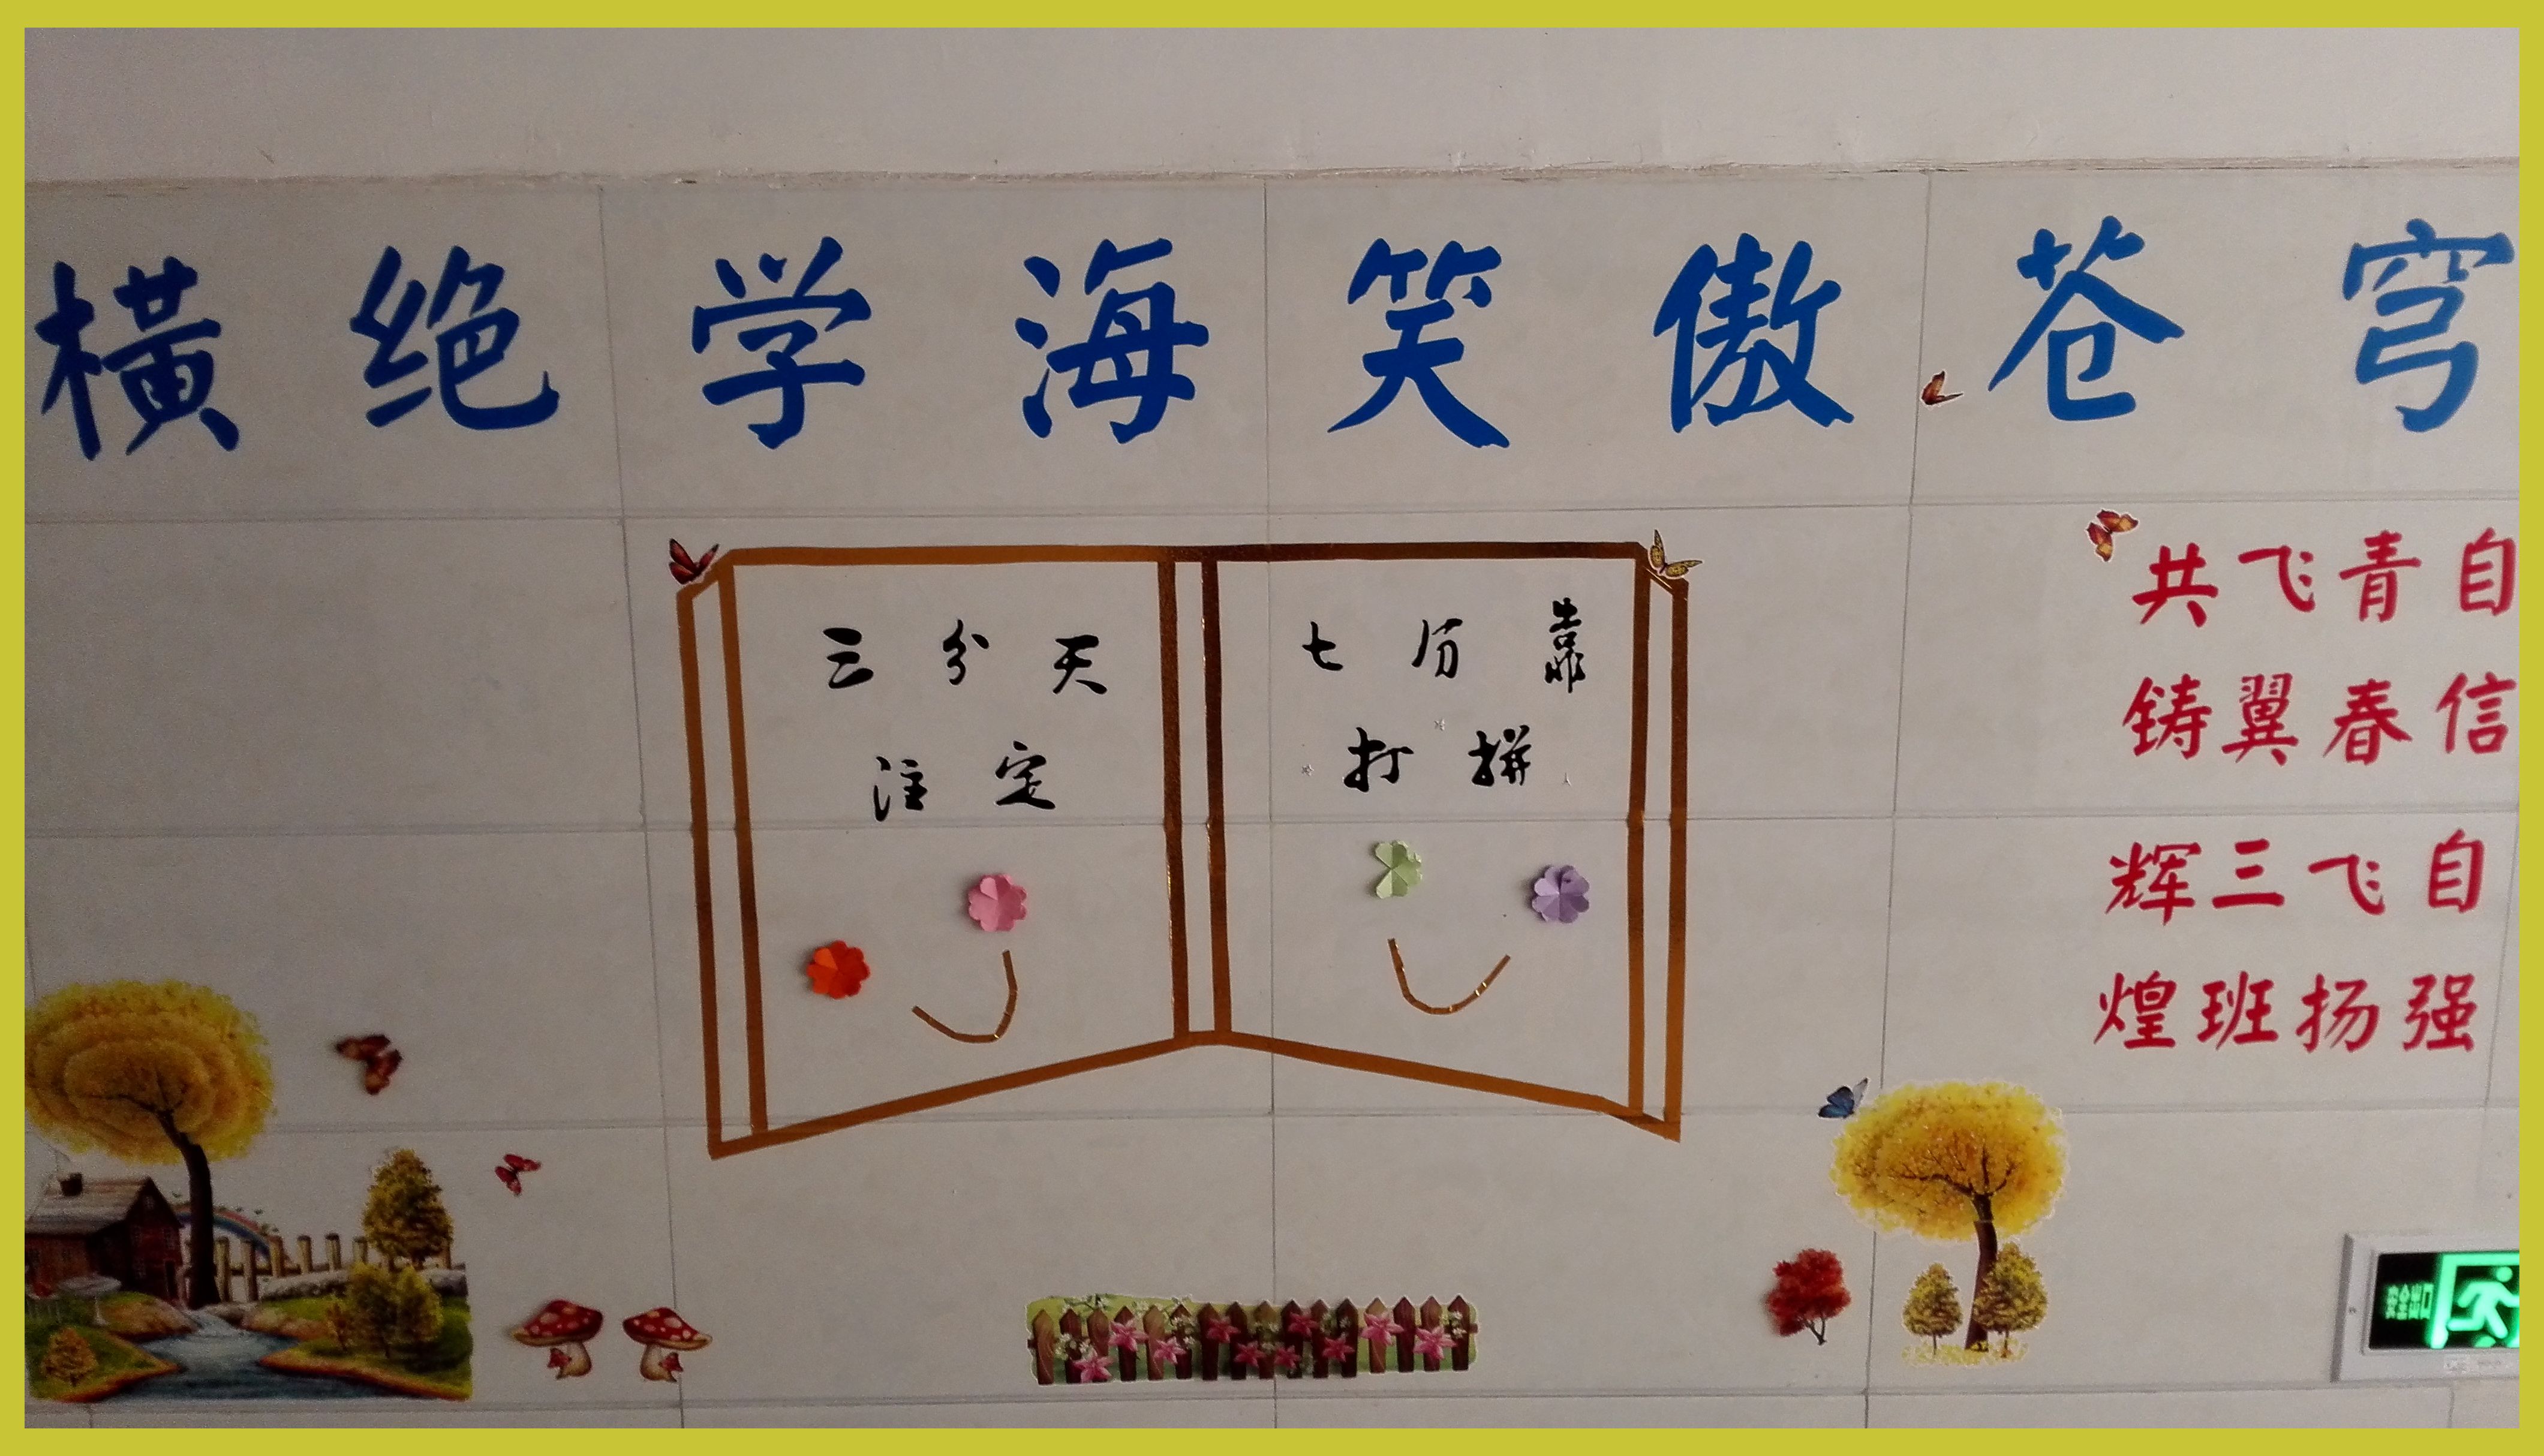 横绝学海笑傲苍穹
三分天
注定
七分靠
打拼
共飞青自
铸翼春信
辉三飞自
煌班扬强
安全出口